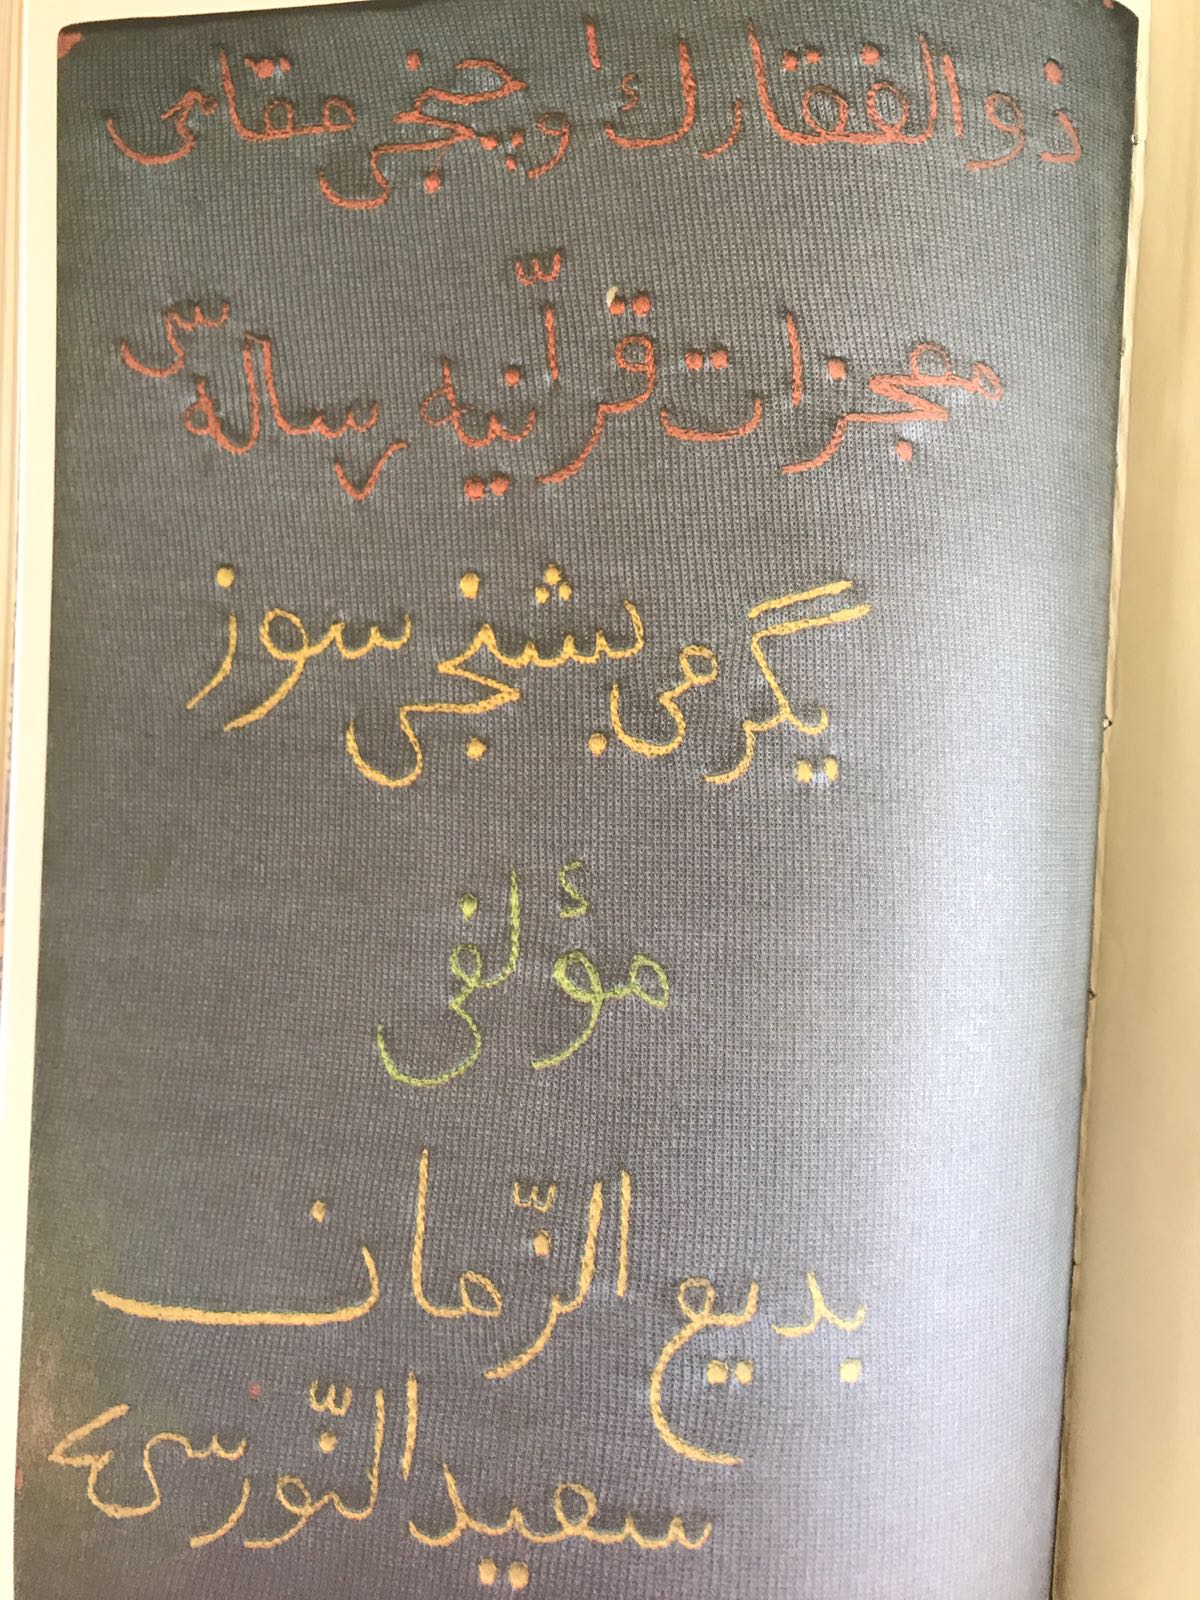 ذوالفقارك اوچنجی مقامی
معجزات قرآنیه رساله سی
یگرمی بشنجی سوز
مؤلفی
بدیع الزّمان
سعید النّورسی